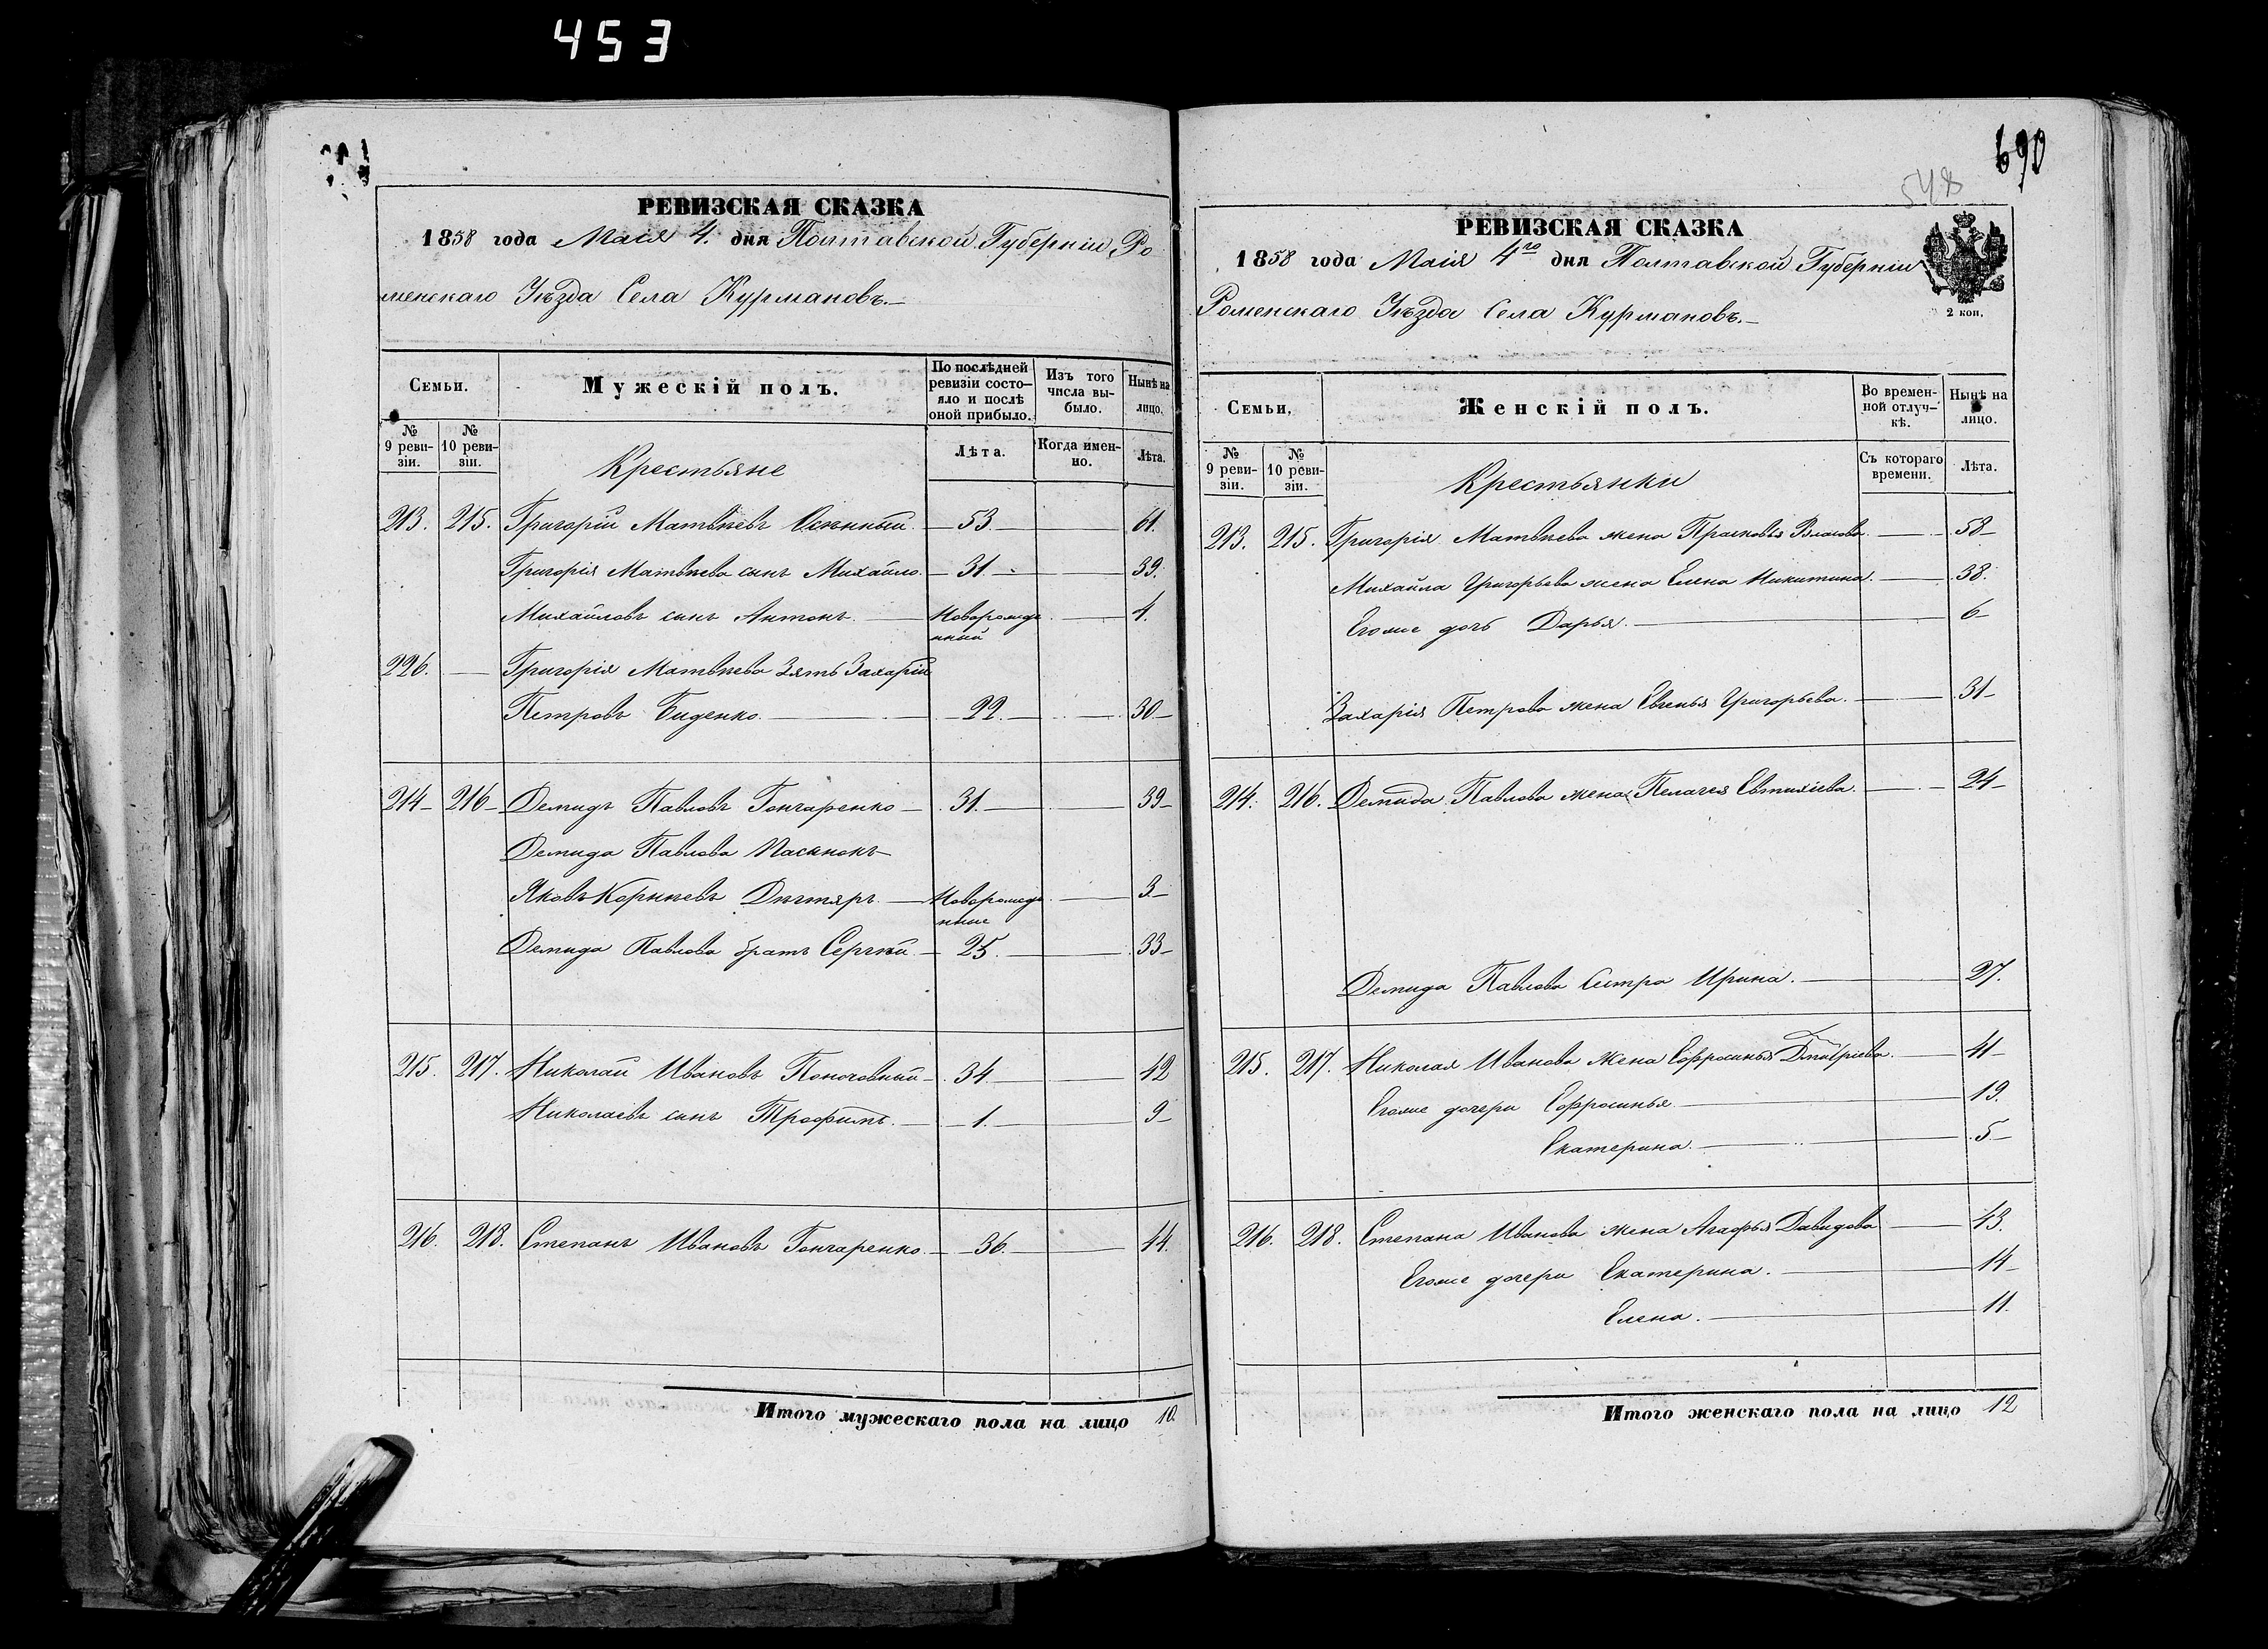 453
РЕВИЗСКАЯ СКАЗКА
1858 года Маія 4. дня Полтавской Губерніи, Ро
менскаго Уѣзда Села Курмановъ.
Семьи.
Мужескій полъ.
По послѣдней ревизіи состояло и послѣ оной прибыло.
Изъ того числа выбыло.
Нынѣ на лицо.
№ 9 ревизіи.
№ 10 ревизіи.
Крестьяне
Лѣта.
Когда именно.
Лѣта.
213. 215. Григорій Матвѣевъ 53. 61.
Григорія Матвѣева сынъ Михайло. 31. 39.
Михайловъ сынъ Антонъ. Новорожденный 4.
226. Григорія Матвѣева Зять Захарій
Петровъ Биденко. 22. 30
214 216 Демидъ Павловъ Гончаренко 31. 39
Демида Павлова Пасынокъ
Яковъ Корнѣевъ Дѣгтяръ Новорожденные 3
Демида Павлова братъ Сергѣй 25. 33
215. 217. Николай Ивановъ Поночовный 34. 42
Николаевъ сынъ Трофимъ. 1. 9
216. 218. Степанъ Ивановъ Гончаренко. 36. 44.
Итого мужескаго пола на лицо 10.
690
548
РЕВИЗСКАЯ СКАЗКА
1858 года Маія 4го дня Полтавской Губерніи
Роменскаго Уѣзда Села Курмановъ.
2 коп.
Семьи,
Женскій полъ.
Во временной отлучкѣ.
Нынѣ на лицо.
№ 9 ревизіи.
№ 10 ревизіи.
Крестьянки
Съ котораго времени.
Лѣта.
213. 215. Григорія Матвѣева жена Прасковья Власова 58
Михайла Григорьева жена Елена Никитина. 38.
Егоже дочь Дарья. 6
Захарія Петрова жена Евгенья Григорьева. 31
214. 216. Демида Павлова жена Пелагея Евтихіева. 24
Демида Павлова Сестра Ирина. 27.
215. 217. Николая Иванова Жена Ефросинья Дмитріева. 41
Егоже дочери Ефросинья 19.
Екатерина. 5
216. 218. Степана Иванова жена Агафья Давидова 43.
Егоже дочери Екатерина. 14
Елена. 11.
Итого женскаго пола на лицо 12